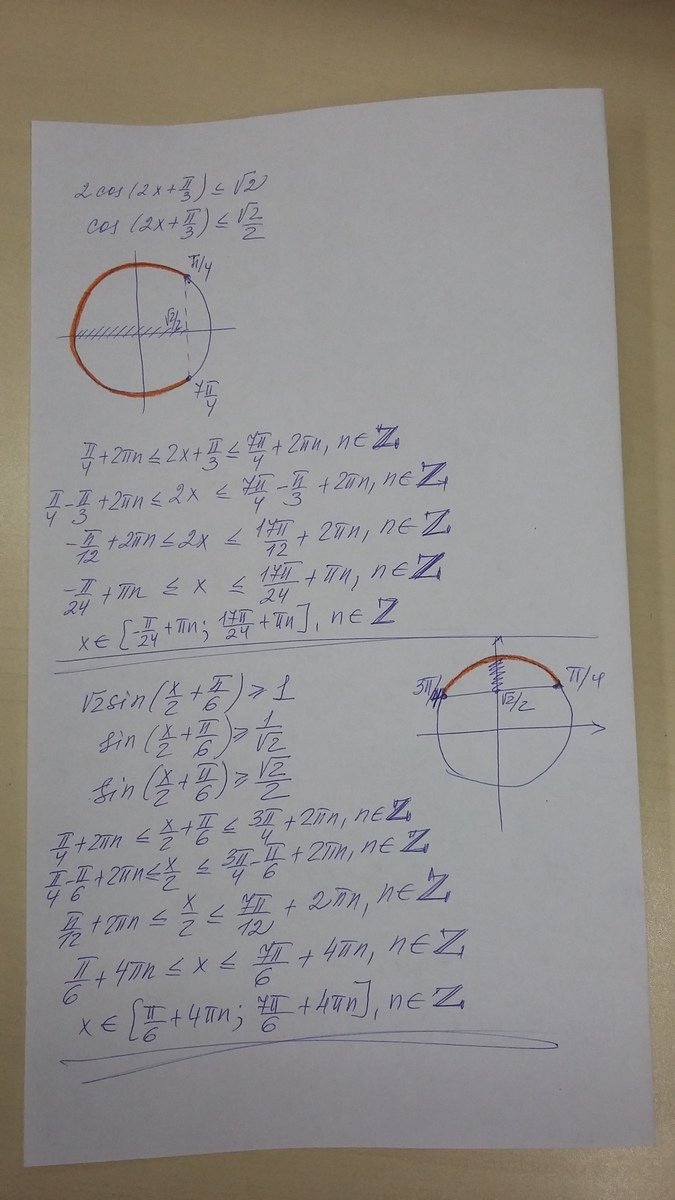 2cos(2x+π/3) ≤ √2
cos(2x+π/3) ≤ √2/2
π/4
√2/2
7π/4
π/4+2πn ≤ 2x+π/3 ≤ 7π/4+2πn, n∈ℤ
π/4-π/3+2πn ≤ 2x ≤ 7π/4-π/3+2πn, n∈ℤ
-π/12+2πn ≤ 2x ≤ 17π/12+2πn, n∈ℤ
-π/24+πn ≤ x ≤ 17π/24+πn, n∈ℤ
x∈[-π/24+πn; 17π/24+πn], n∈ℤ
√2sin(x/2+π/6) ≥ 1
sin(x/2+π/6) ≥ 1/√2
sin(x/2+π/6) ≥ √2/2
3π/4
π/4
√2/2
π/4+2πn ≤ x/2+π/6 ≤ 3π/4+2πn, n∈ℤ
π/4-π/6+2πn ≤ x/2 ≤ 3π/4-π/6+2πn, n∈ℤ
π/12+2πn ≤ x/2 ≤ 7π/12+2πn, n∈ℤ
π/6+4πn ≤ x ≤ 7π/6+4πn, n∈ℤ
x∈[π/6+4πn; 7π/6+4πn], n∈ℤ